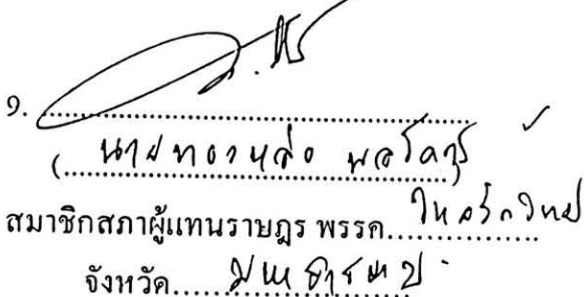 ๑. ........................................
(นายทองหล่อ พลโคตร์
สมาชิกสภาผู้แทนราษฎร พรรค ไทยรักไทย
จังหวัด มหาสารคาม